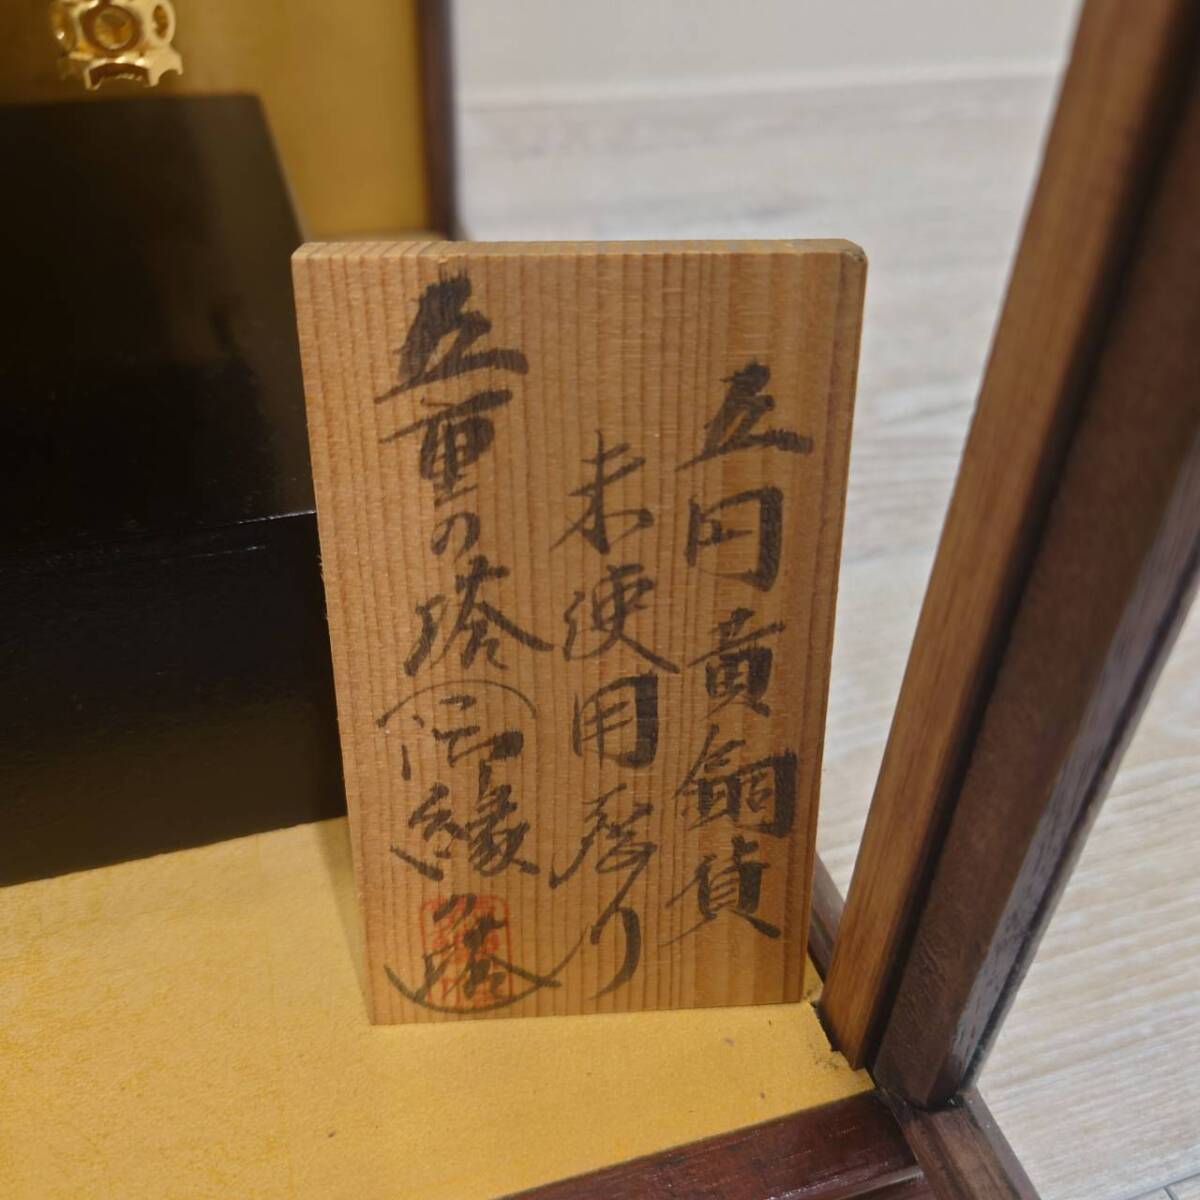 五円黄銅貨
未使用造り
五重の塔
(御縁の塔)